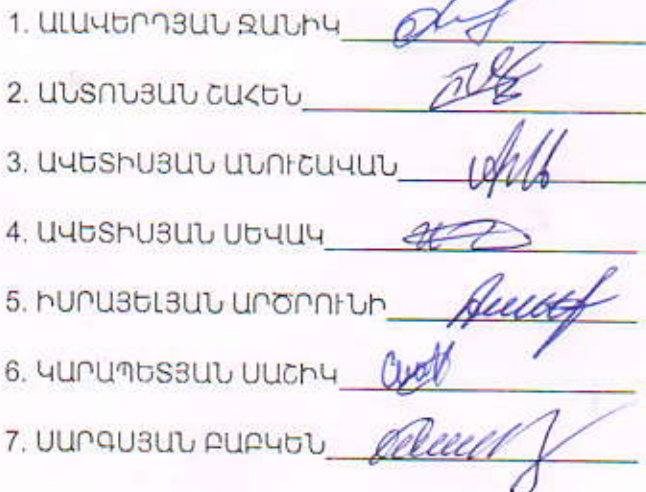 1. ԱԼԱՎԵՐԴՅԱՆ ՋԱՆԻԿ
2. ԱՆՏՈՆՅԱՆ ՇԱՀԵՆ
3. ԱՎԵՏԻՍՅԱՆ ԱՆՈՒՇԱՎԱՆ
4. ԱՎԵՏԻՍՅԱՆ ՍԵՎԱԿ
5. ԻՍՐԱՅԵԼՅԱՆ ԱՐԾՐՈՒՆԻ
6. ԿԱՐԱՊԵՏՅԱՆ ՍԱՇԻԿ
7. ՍԱՐԳՍՅԱՆ ԲԱԲԿԵՆ